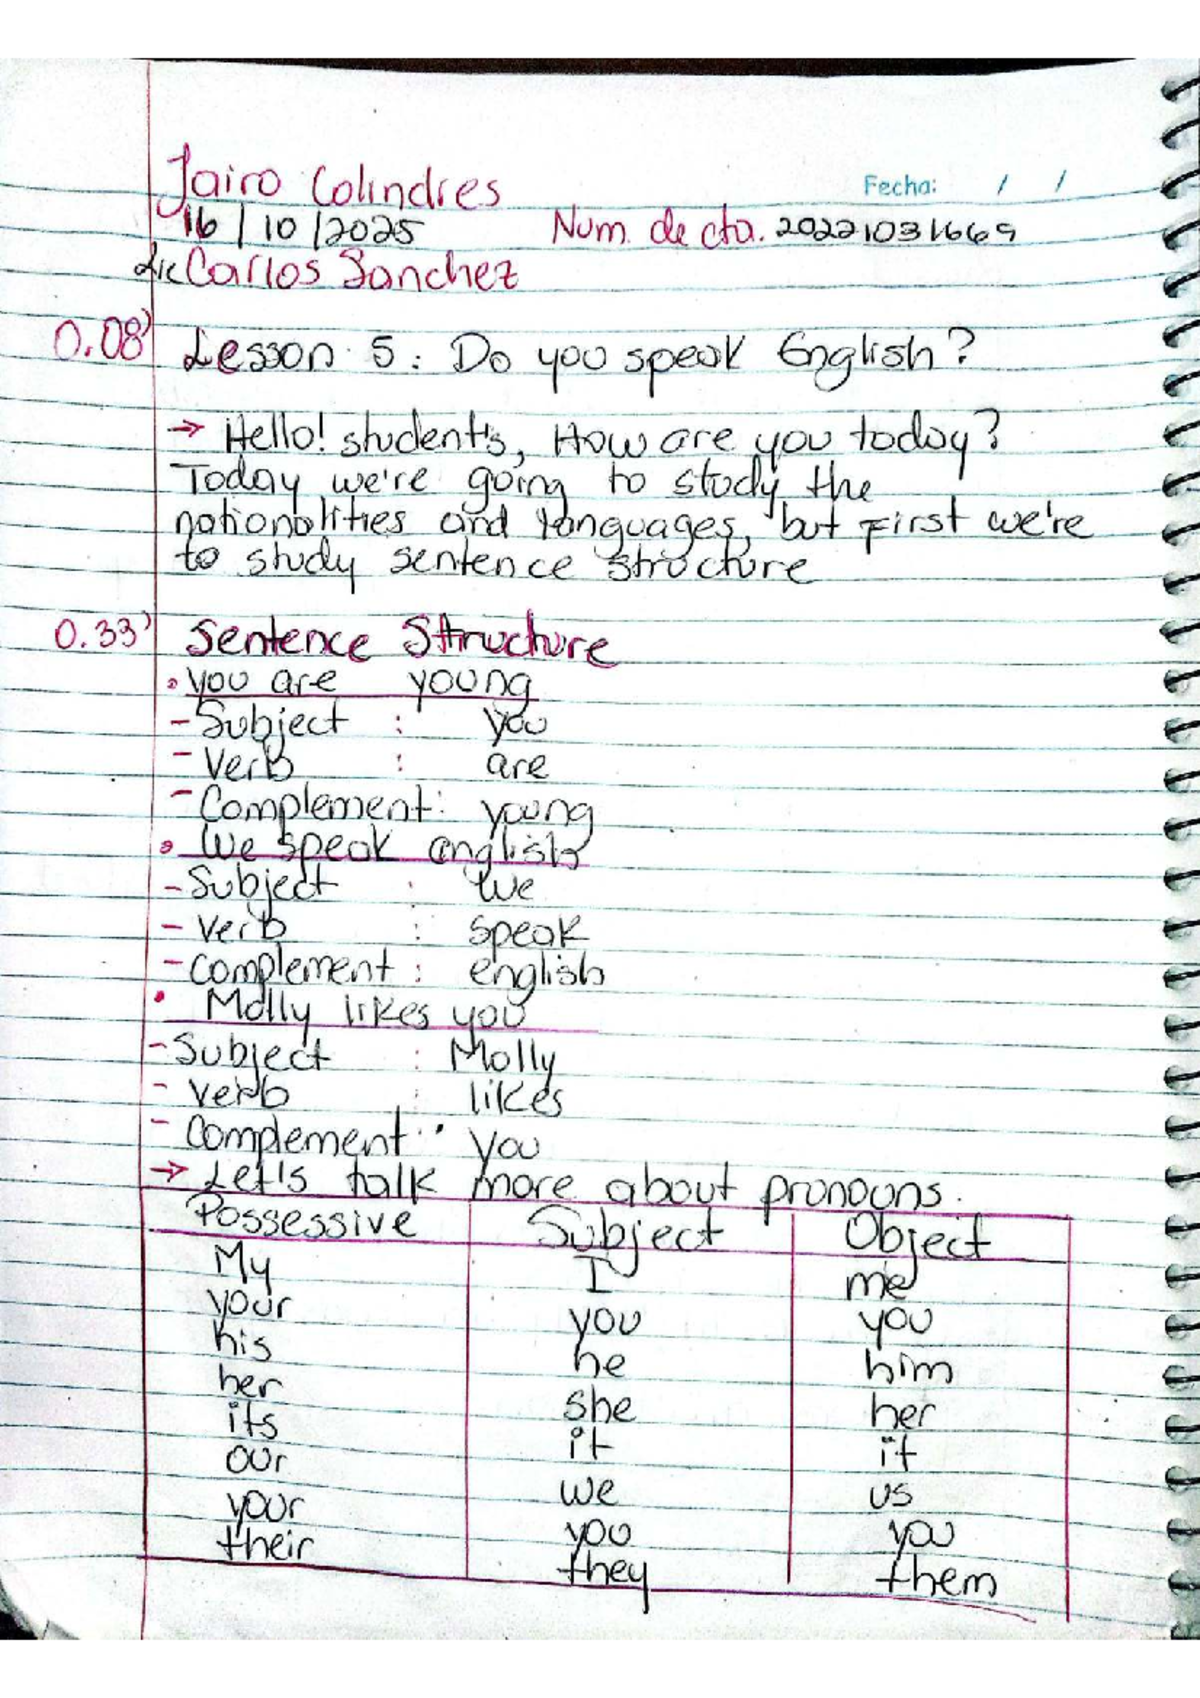 Jairo Colindres
Fecha: / /
16/10/2025 Num. de cta. 20221031669
Lic Carlos Sanchez
0.08' Lesson 5: Do you speak English?
→ Hello! student's, How are you today?
Today we're going to study the
nationalities and languages, but First we're
to study sentence structure
0.33' Sentence Structure
• you are young
- Subject : you
- Verb : are
- Complement: young
• We speak english
- Subject : We
- Verb : speak
- complement : english
• Molly likes you
- Subject : Molly
- Verb : likes
- Complement : you
→ Let's talk more about pronouns.
Possessive Subject Object
My I me
your you you
his he him
her she her
its it it
our we us
your you you
their they them